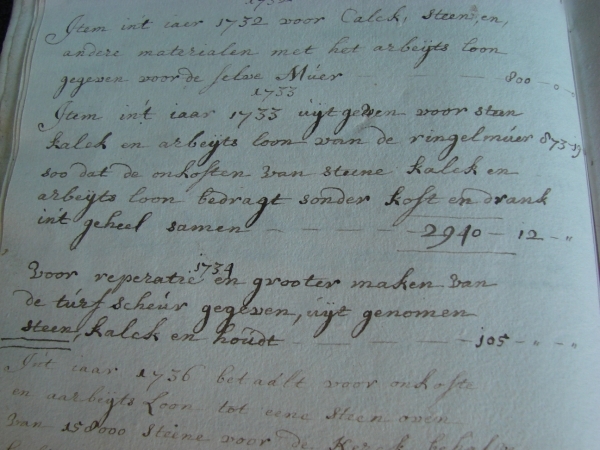 1732
Jtem int iaer 1732 voor Calck, steen, en,
andere materialen met het arbeijts loon
gegeven voor de selve Múer — — — 800 - 0 - 0
1733
Jtem int iaar 1733 uijtgeven voor steen
kalck en arbeijts loon van de ringelmúer 873-19
soo dat de onkosten van steene kalck en
arbeijts loon bedragt sonder kost en drank
int geheel samen — — — — 2940 - 12 - "
1734
Voor reperatie en grooter maken van
de túrf scheúr gegeven, uijt genomen
steen, kalck en hoúdt — — — — 105 - " - "
Int iaar 1736 betaalt voor onkoste
en aarbeijts Loon tot eene steen oven
van 158000 steene voor de Kerck